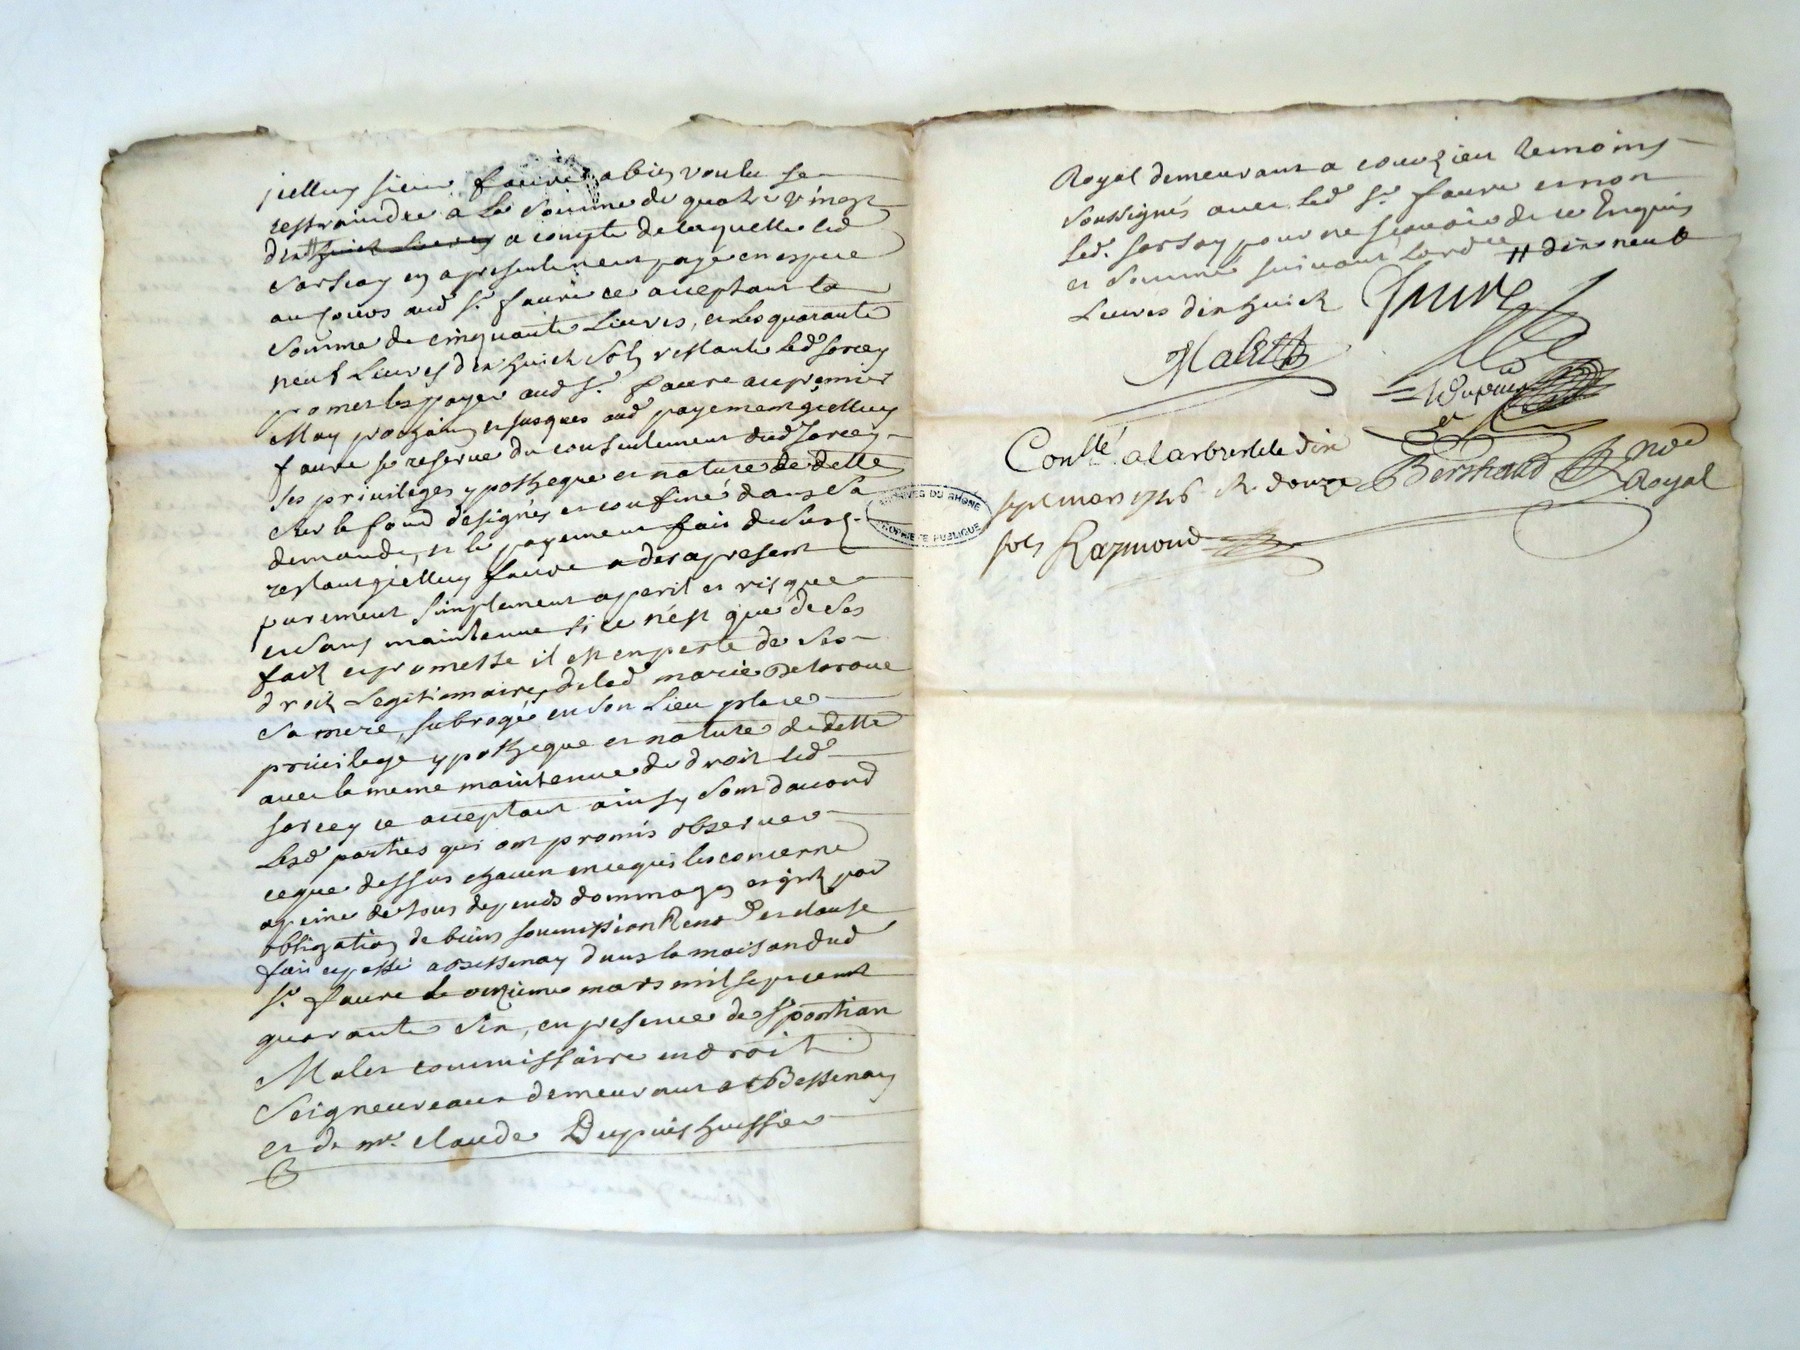 jcelluy sieur faure a bien voulu se
restraindre a la somme de quatre vingt
dix # huict Livres a compte de laquelle led
Sarsay en a presentement payé en espece
au cours aud Sr. faure ce acceptant la
somme de cinquante Livres, et les quarante
neuf Livres dix huict sols restante led sorcey
promet les payer aud Sr. faure au premier
May prochain et jusques aud payement jcelluy
faure se reserve du consentement dud Sorcey
ses privileges ypotheque et nature de dette
sur le fond designés et confiné dans sa
demande, et le payement fait du
restant jcelluy faure a des a present
purement simplement a peril et risque
et sans maintenue si ce n'est que de ses
fait et promesse il est en perte de ses
droit Legitimaires de lad marie Delaroue
sa mere, subrogé en son lieu place
privilege ypotheque et nature de dette
avec la meme maintenue de droit led
sorcey ce acceptant ainsy sont d'acord
Lesd parties qui ont promis observer
ce que dessus chacun en ce qui les concerne
a peine de tous depends dommages et jnt par
obligation de biens soumission Renon et clause
fait et passé a Bessenay dans la maison dud
Sr. faure le onzieme mars mil sept cent
quarante six, en presence de Sr
Malet commissaire en droit
Seigneureaux demeurant a Bessenay
et de me. claude Dupuis huissier
Royal demeurant a courzieu temoins
soussignés avec led Sr. faure et non
led. sarsay pour ne scavoir de ce Enquis
et sommé suivant Lord ce # dix neuf
Livres dix huict Faure
Malet
Dupuis
Conllé a larbresle le dix
sept mars 1746 R. douze
sols Raymond
Berthaud Nore
Royal
ARCHIVES DU RHONE
PROPRIETE PUBLIQUE